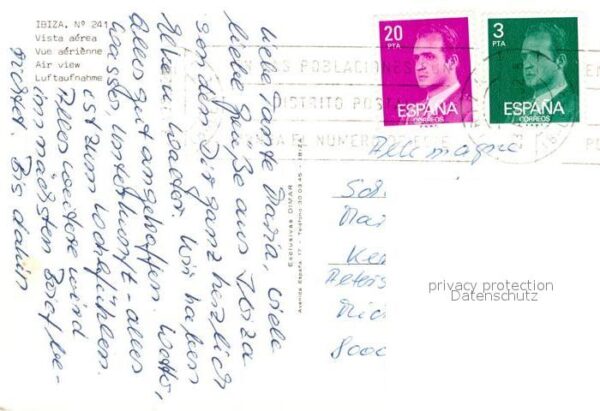 IBIZA. Nº 241
Vista aérea
Vue aérienne
Air view
Luftaufnahme
20
PTA
ESPAÑA
CORREOS
3
PTA
ESPAÑA
CORREOS
POBLACIONES
DISTRITO POSTAL
EL NUMERO
Liebe Tante Maria, viele
liebe Grüße aus Ibiza
senden Dir ganz herzlich
Wir haben
alles gut angetroffen. Wetter,
Wasser, Unterkunft - alles
ist zum Wohlfühlen.
Alles weitere wird
im nächsten Brief be-
Bis dahin
Exclusivas DIMAR
Avenida España, 17 - Teléfono 30 09 45 - IBIZA
Allemagne
privacy protection
Datenschutz